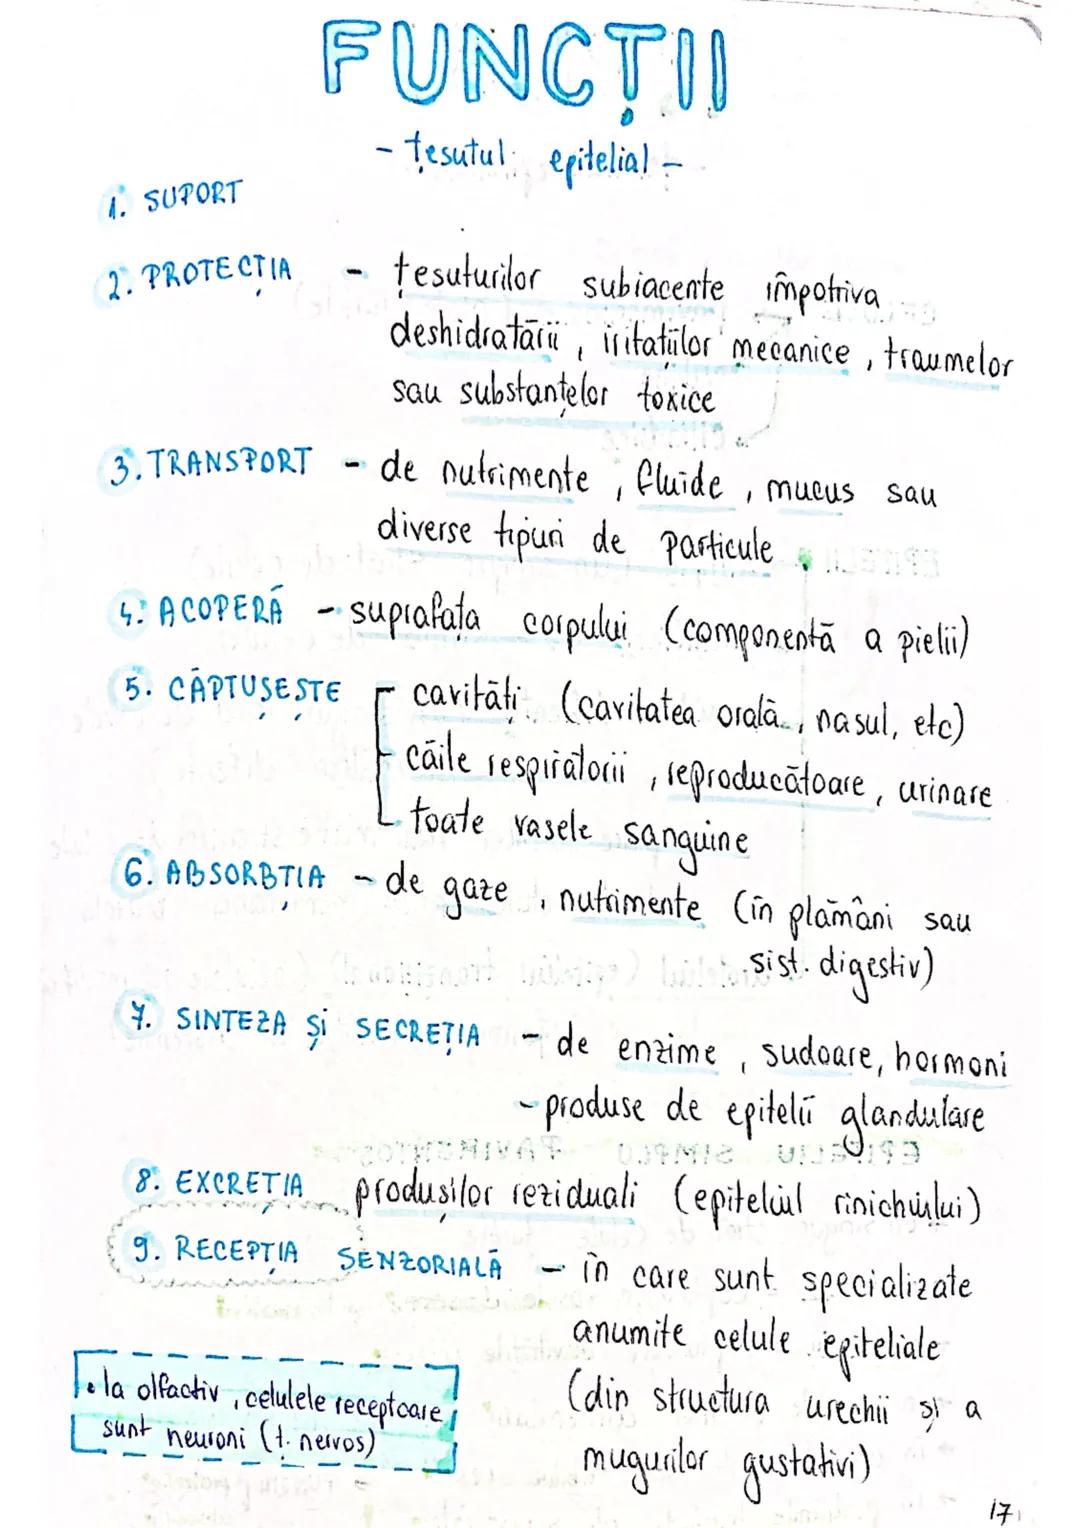 FUNCȚII
- țesutul epitelial -
1. SUPORT
2. PROTECȚIA - țesuturilor subiacente împotriva
deshidratării, iritațiilor mecanice, traumelor
sau substanțelor toxice
3. TRANSPORT - de nutrimente, fluide, mucus sau
diverse tipuri de particule
4. ACOPERĂ - suprafața corpului (componentă a pielii)
5. CĂPTUȘEȘTE cavități (cavitatea orală, nasul, etc)
căile respiratorii, reproducătoare, urinare
toate vasele sanguine
6. ABSORBȚIA - de gaze, nutrimente (în plămâni sau
sist. digestiv)
7. SINTEZA și SECREȚIA - de enzime, sudoare, hormoni
- produse de epitelii glandulare
8. EXCREȚIA produșilor reziduali (epiteliul rinichiului)
9. RECEPȚIA SENZORIALĂ - în care sunt specializate
anumite celule epiteliale
(din structura urechii și a
mugurilor gustativi)
• la olfactiv, celulele receptoare
sunt neuroni (ț. nervos)
17